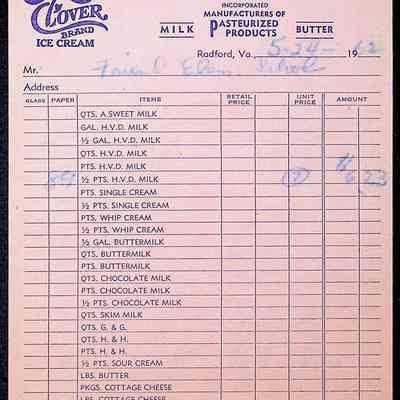 CLOVER
BRAND
ICE CREAM
INCORPORATED
MANUFACTURERS OF
MILK PASTEURIZED BUTTER
PRODUCTS
Radford, Va., 5-24- 1962
Mr. Friend Elem. School
Address
GLASS PAPER ITEMS RETAIL PRICE UNIT PRICE AMOUNT
QTS. A SWEET MILK
GAL. H.V.D. MILK
½ GAL. H.V.D. MILK
QTS. H.V.D. MILK
PTS. H.V.D. MILK
89 ½ PTS. H.V.D. MILK 7 $6 23
PTS. SINGLE CREAM
½ PTS. SINGLE CREAM
PTS. WHIP CREAM
½ PTS. WHIP CREAM
½ GAL. BUTTERMILK
QTS. BUTTERMILK
PTS. BUTTERMILK
QTS. CHOCOLATE MILK
PTS. CHOCOLATE MILK
½ PTS. CHOCOLATE MILK
QTS. SKIM MILK
QTS. G. & G.
QTS. H. & H.
PTS. H. & H.
½ PTS. SOUR CREAM
LBS. BUTTER
PKGS. COTTAGE CHEESE
LBS. COTTAGE CHEESE